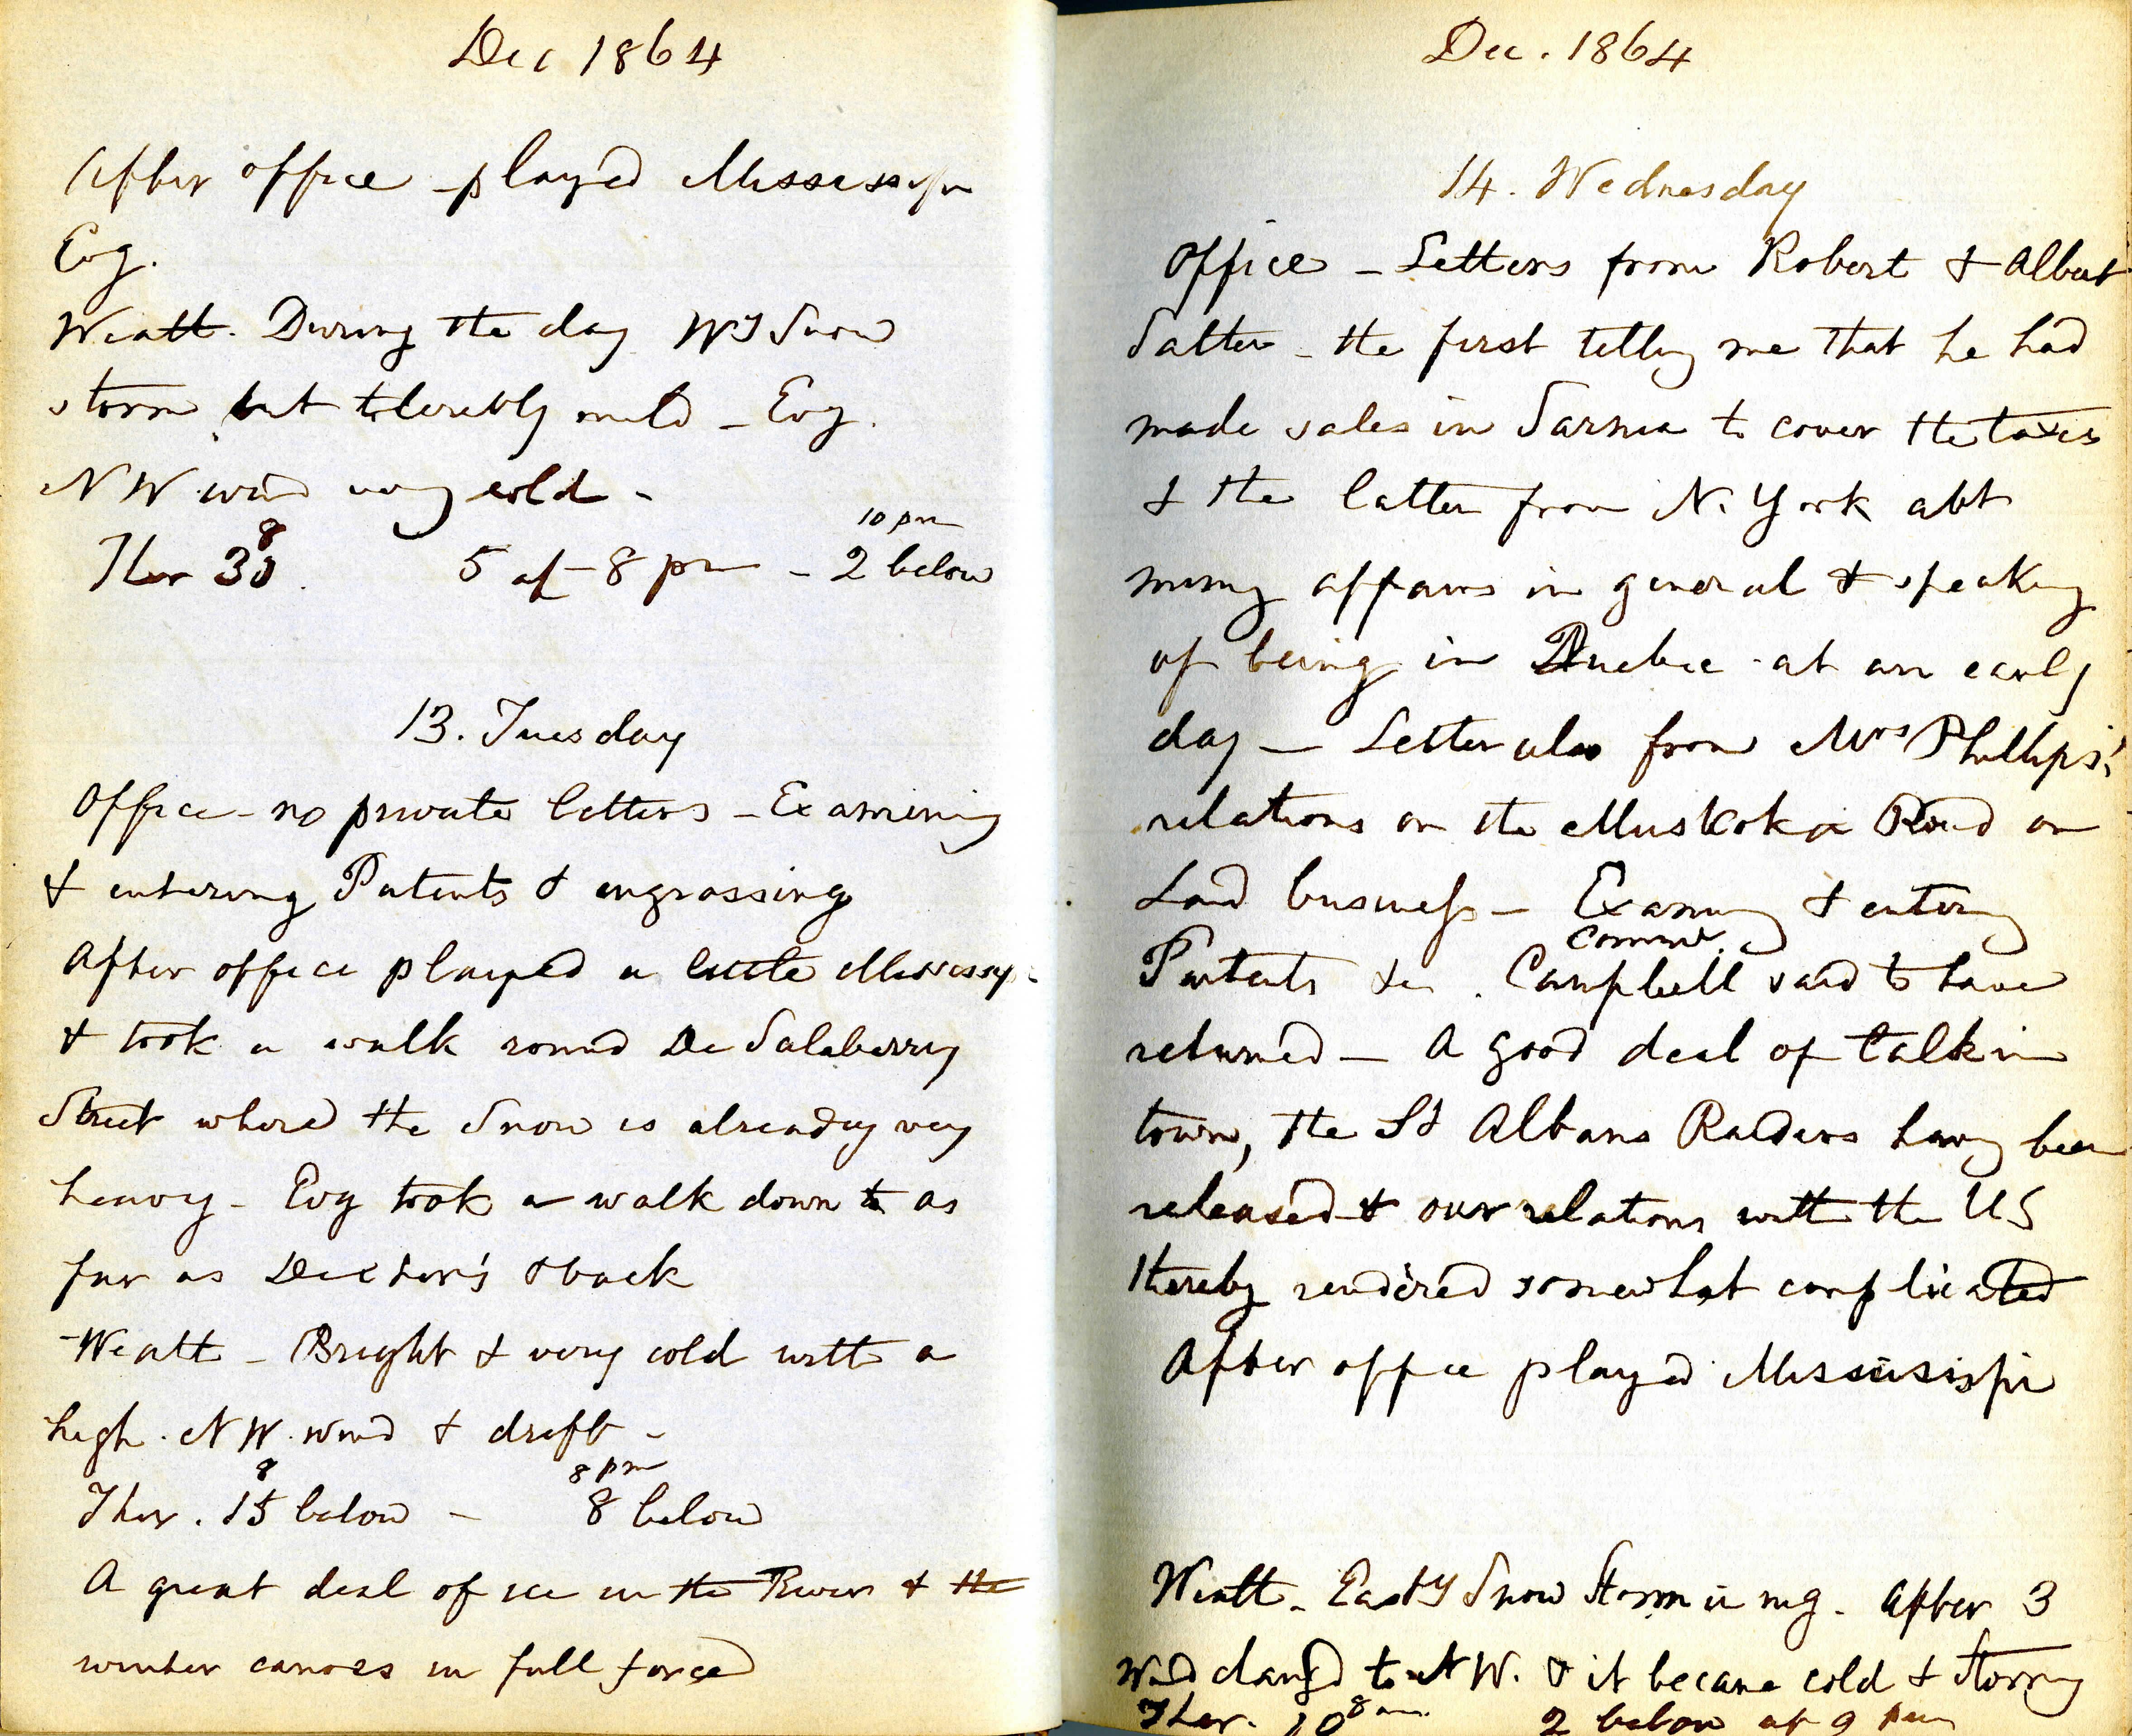 Dec 1864
After office play'd Mississippi
Evg.
Weath. During the day Wy Snow
storm but tolerably mild – Evg.
N W. wind very cold –
8 10 pm
Ther 30. 5 at 8 pm – 2 below
13. Tuesday
Office – no private letters – Examining
& entering Patents & engrossing
After office played a little Mississip
& took a walk round De Salaberry
Street where the Snow is already very
heavy – Evg took a walk down to as
far as Dector's & back
Weath – Bright & very cold with a
high. N W. wind & drift –
8 8 pm
Ther. 15 below – 8 below
A great deal of ice in the River & the
winter canoes in full forced
Dec. 1864
14. Wednesday
Office – Letters from Robert & Albert
Salter – the first telling me that he had
made sales in Sarnia to cover the taxes
& the latter from N. York abt
mining affairs in general & speaking
of being in Quebec at an early
day – Letter also from Mrs Phillips'
relations on the Muskoka Road on
Land business – Examing & entering
Commr.
Patents &c. Campbell said to have
returned – A good deal of talk in
town, the St Albans Raiders having been
released & our relations with the US
thereby rendered somewhat complicated
After office played Mississippi
Weath – Eastly Snow Storm in mg. After 3
Wind changd to N W. & it became cold & Stormy
Ther. 10 8 am. 2 below at 9 pm